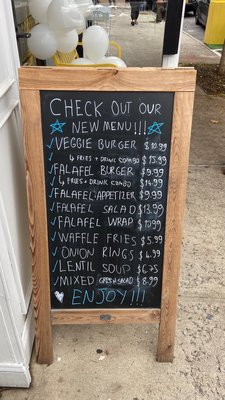 CHECK OUT OUR
NEW MENU!!!
✓ VEGGIE BURGER $10.99
✓ & FRIES + DRINK COMBO $15.99
✓ FALAFEL BURGER $9.99
✓ & FRIES + DRINK COMBO $14.99
✓ FALAFEL APPETIZER $9.99
✓ FALAFEL SALAD $13.99
✓ FALAFEL WRAP $10.99
✓ WAFFLE FRIES $5.99
✓ ONION RINGS $6.99
✓ LENTIL SOUP $6.75
✓ MIXED GREEN SALAD $8.99
ENJOY!!!